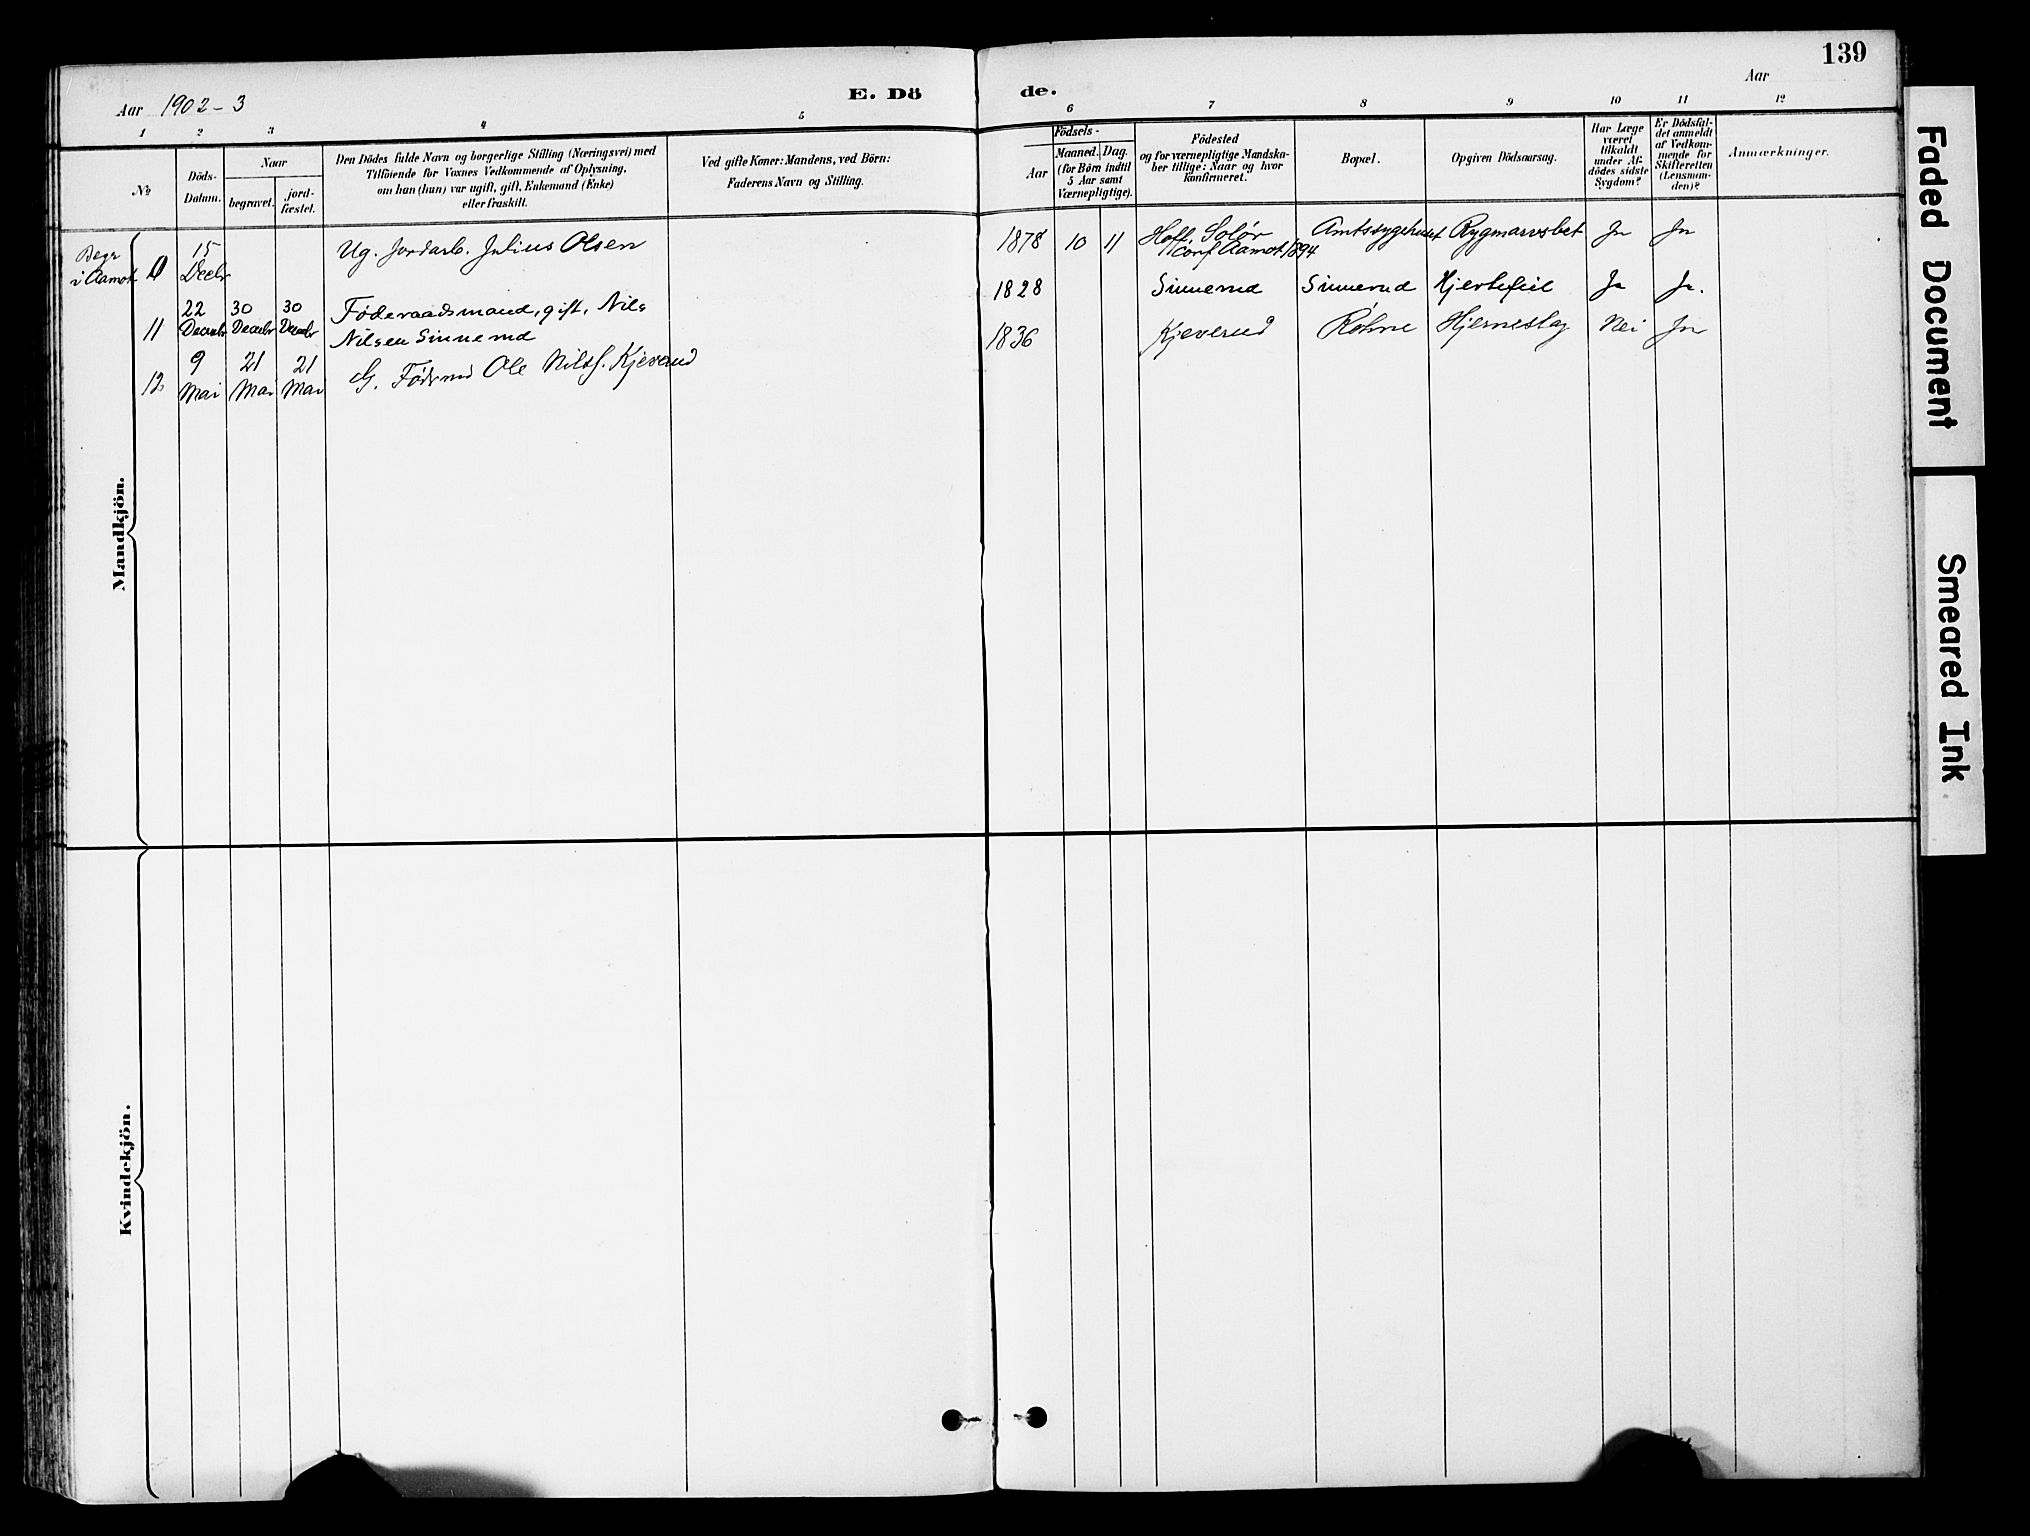 139
Aar 1902-3
E. Dö
de.
Aar
1 2 3 4 5 6 7 8 9 10 11 12
No
Döds-
Datum.
Naar
begravet.
jord-
fæstet.
Den Dödes fulde Navn og borgerlige Stilling (Næringsvei) med
Tilföiende for Voxnes Vedkommende af Oplysning,
om han (hun) var ugift, gift, Enkemand (Enke)
eller fraskilt.
Ved gifte Koner: Mandens, ved Börn:
Faderens Navn og Stilling.
Födsels-
Aar
Maaned. Dag.
(for Börn indtil
5 Aar samt
Værnepligtige).
Födested
og for værnepligtige Mandska-
ber tillige: Naar og hvor
konfirmeret.
Bopæl.
Opgiven Dödsaarsag.
Har Læge
været
tilkaldt
under Af-
dödes sidste
Sygdom?
Er Dödsfal-
det anmeldt
af Vedkom-
mende for
Skifteretten
(Lensman-
den)?
Anmærkninger.
Mandkjön.
Begr
i Aamot
15
Decbr
Ug. Jordarb. Julius Olsen
1878 10 11
Hoff, Solør
Conf Aamot 1894
Amtssygehuset
Rygmarvsbet
Ja
Ja
11
22
Decembr
30
Decembr
30
Decembr
Føderaadsmand, gift, Nils
Nilsen Sinnerud
1828
Sinnerud
Sinnerud
Hjertefeil
Ja
Ja.
12
9
Mai
21
Mai
21
Mai
G. Fødrmd Ole Nilss. Kjeverud
1836
Kjeverud
Røhne
Hjerneslag
Nei
Ja
Kvindekjön.
Faded Document
Smeared Ink